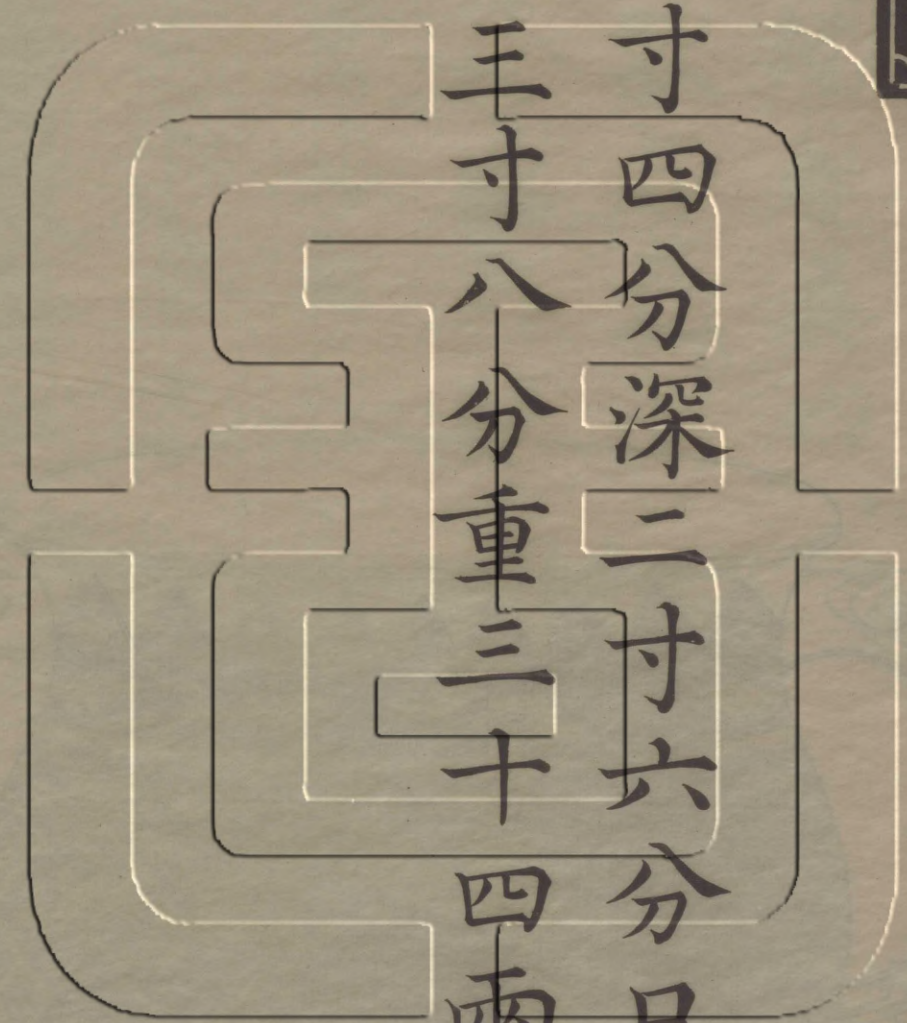 寸四分深二寸六分口
三寸八分重三十四兩